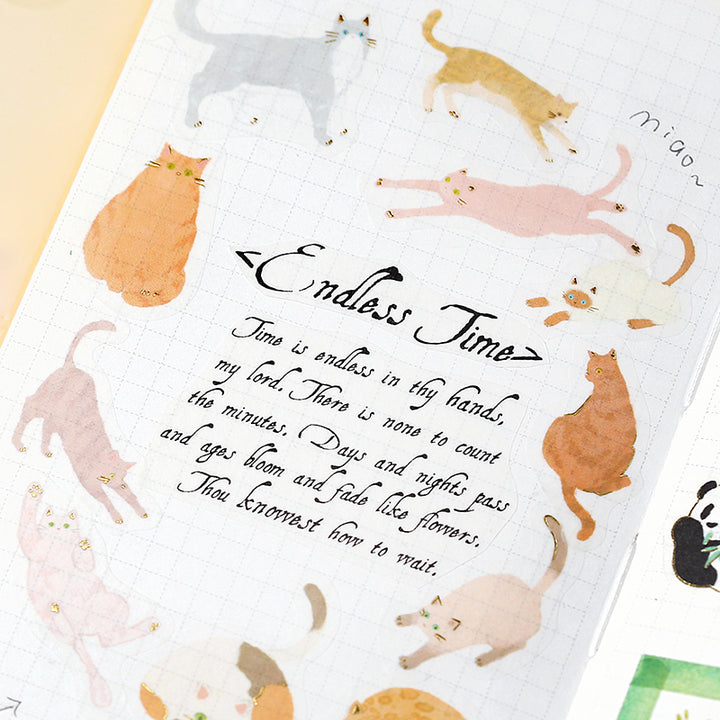 miao~
<Endless Time>
Time is endless in thy hands,
my lord. There is none to count
the minutes. Days and nights pass
and ages bloom and fade like flowers.
Thou knowest how to wait.